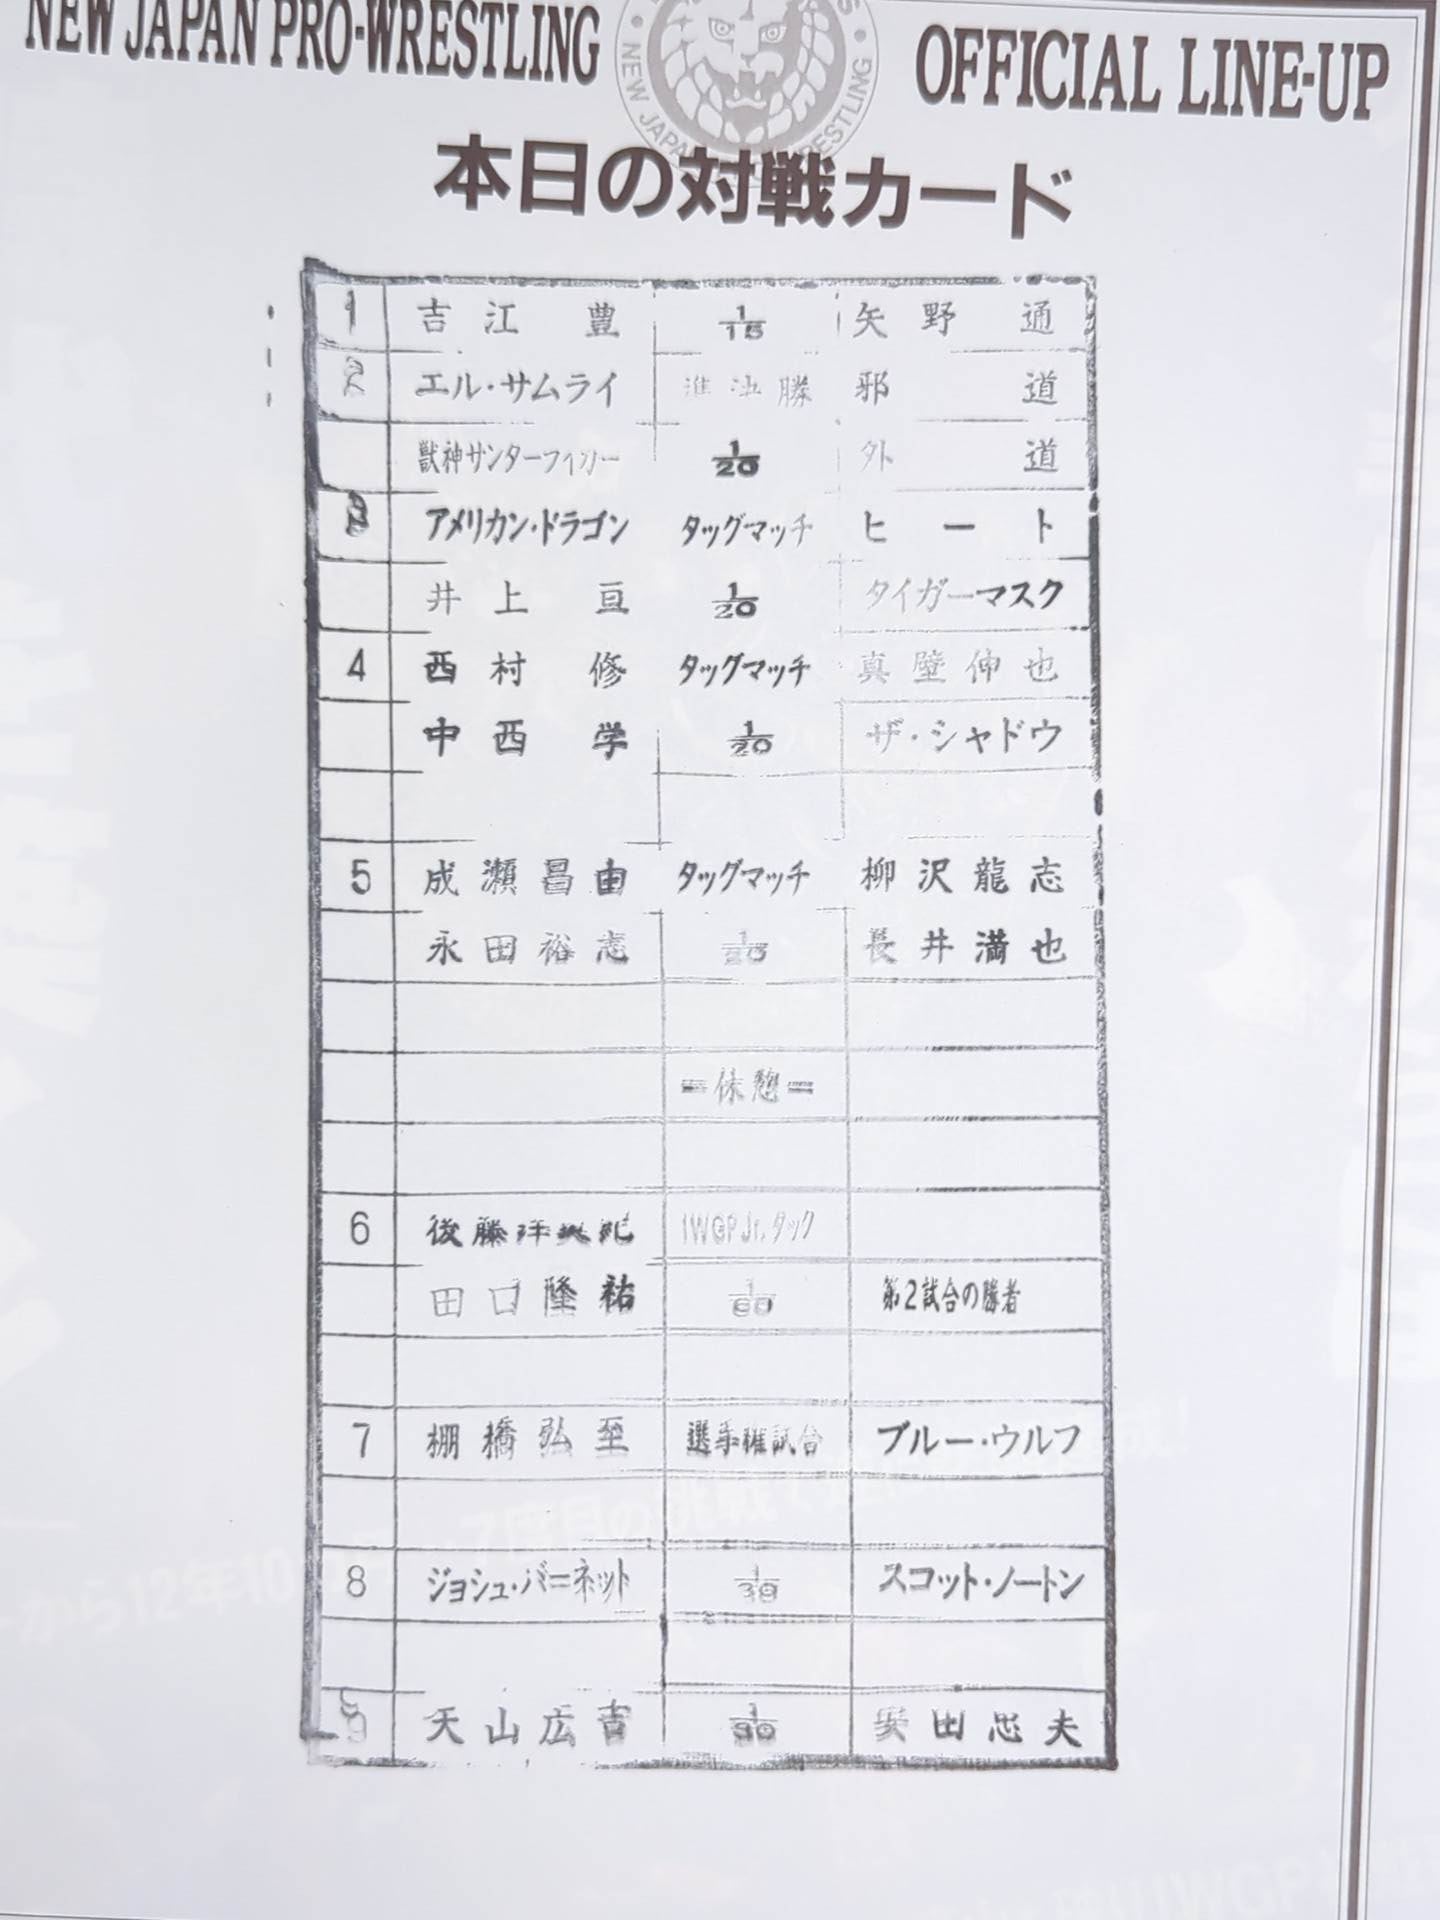 NEW JAPAN PRO-WRESTLING OFFICIAL LINE-UP
本日の対戦カード
1 吉江 豊 1/15 矢野 通
2 エル・サムライ 準決勝 邪道
獣神サンダーライガー 1/20 外道
3 アメリカン・ドラゴン タッグマッチ ヒート
井上 亘 1/20 タイガーマスク
4 西村 修 タッグマッチ 真壁伸也
中西 学 1/20 ザ・シャドウ
5 成瀬昌由 タッグマッチ 柳沢龍志
永田裕志 1/20 長井満也
=休憩=
6 後藤洋央紀 IWGPJr.タッグ
田口隆祐 1/60 第2試合の勝者
7 棚橋弘至 選手権試合 ブルー・ウルフ
8 ジョシュ・バーネット 1/30 スコット・ノートン
9 天山広吉 1/30 安田忠夫